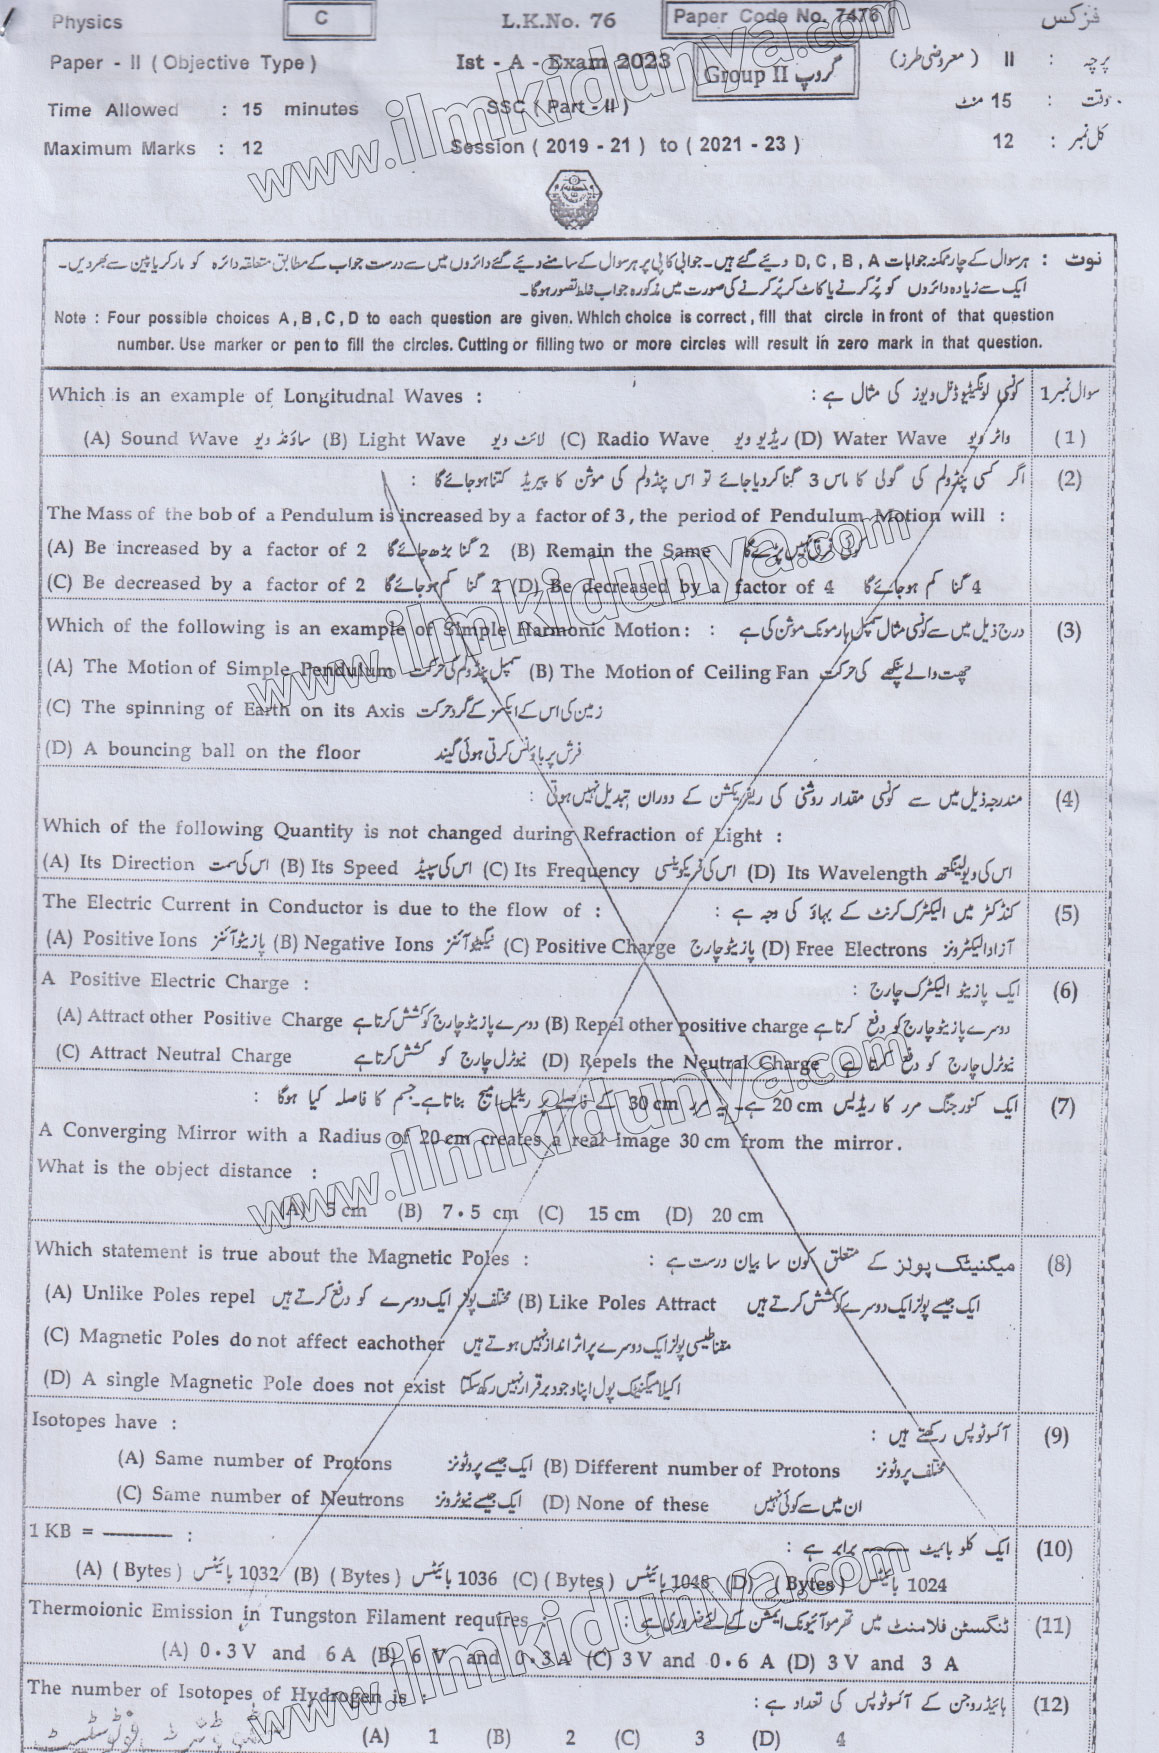 Physics C L.K.No. 76 Paper Code No. 7476 فزکس
Paper - II ( Objective Type ) Ist - A - Exam 2023 Group II گروپ پرچہ : II ( معروضی طرز )
Time Allowed : 15 minutes SSC ( Part - II ) وقت : 15 منٹ
Maximum Marks : 12 Session ( 2019 - 21 ) to ( 2021 - 23 ) کل نمبر : 12
نوٹ : ہر سوال کے چار ممکنہ جوابات D, C, B, A دیئے گئے ہیں۔ جوابی کاپی پر ہر سوال کے سامنے دیئے گئے دائروں میں سے درست جواب کے مطابق متعلقہ دائرہ کو مارکر یا پین سے بھر دیں۔
ایک سے زیادہ دائروں کو پُر کرنے یا کاٹ کر پُر کرنے کی صورت میں مذکورہ جواب غلط تصور ہوگا۔
Note : Four possible choices A , B , C , D to each question are given. Which choice is correct , fill that circle in front of that question
number. Use marker or pen to fill the circles. Cutting or filling two or more circles will result in zero mark in that question.
Which is an example of Longitudnal Waves : کونسی لونگیٹیوڈنل ویوز کی مثال ہے : سوال نمبر 1
(A) Sound Wave ساؤنڈ ویو (B) Light Wave لائٹ ویو (C) Radio Wave ریڈیو ویو (D) Water Wave واٹر ویو (1)
اگر کسی پنڈولم کی گولی کا ماس 3 گنا کر دیا جائے تو اس پنڈولم کی موشن کا پیریڈ کتنا ہو جائے گا : (2)
The Mass of the bob of a Pendulum is increased by a factor of 3 , the period of Pendulum Motion will :
(A) Be increased by a factor of 2 2 گنا بڑھ جائے گا (B) Remain the Same کوئی فرق نہیں پڑے گا
(C) Be decreased by a factor of 2 2 گنا کم ہو جائے گا (D) Be decreased by a factor of 4 4 گنا کم ہو جائے گا
Which of the following is an example of Simple Harmonic Motion: : درج ذیل میں سے کونسی مثال سمپل ہارمونک موشن کی ہے (3)
(A) The Motion of Simple Pendulum سمپل پنڈولم کی حرکت (B) The Motion of Ceiling Fan چھت والے پنکھے کی حرکت
(C) The spinning of Earth on its Axis زمین کی اس کے ایکسز کے گرد حرکت
(D) A bouncing ball on the floor فرش پر باؤنس کرتی ہوئی گیند
مندرجہ ذیل میں سے کونسی مقدار روشنی کی ریفریکشن کے دوران تبدیل نہیں ہوتی : (4)
Which of the following Quantity is not changed during Refraction of Light :
(A) Its Direction اس کی سمت (B) Its Speed اس کی سپیڈ (C) Its Frequency اس کی فریکوئنسی (D) Its Wavelength اس کی ویولینگتھ
The Electric Current in Conductor is due to the flow of : کنڈکٹر میں الیکٹرک کرنٹ کے بہاؤ کی وجہ ہے : (5)
(A) Positive Ions پازیٹو آئنز (B) Negative Ions نیگیٹو آئنز (C) Positive Charge پازیٹو چارج (D) Free Electrons آزاد الیکٹرونز
A Positive Electric Charge : ایک پازیٹو الیکٹرک چارج : (6)
(A) Attract other Positive Charge دوسرے پازیٹو چارج کو کشش کرتا ہے (B) Repel other positive charge دوسرے پازیٹو چارج کو دفع کرتا ہے
(C) Attract Neutral Charge نیوٹرل چارج کو کشش کرتا ہے (D) Repels the Neutral Charge نیوٹرل چارج کو دفع کرتا ہے
ایک کنورجنگ مرر کا ریڈیس 20 cm ہے۔ یہ مرر 30 cm کے فاصلے پر ریئیل امیج بناتا ہے۔ جسم کا فاصلہ کیا ہوگا : (7)
A Converging Mirror with a Radius of 20 cm creates a real image 30 cm from the mirror .
What is the object distance :
(A) 5 cm (B) 7.5 cm (C) 15 cm (D) 20 cm
Which statement is true about the Magnetic Poles : میگنیٹک پولز کے متعلق کون سا بیان درست ہے : (8)
(A) Unlike Poles repel مختلف پولز ایک دوسرے کو دفع کرتے ہیں (B) Like Poles Attract ایک جیسے پولز ایک دوسرے کو کشش کرتے ہیں
(C) Magnetic Poles do not affect eachother مقناطیسی پولز ایک دوسرے پر اثر انداز نہیں ہوتے ہیں
(D) A single Magnetic Pole does not exist اکیلا میگنیٹک پول اپنا وجود برقرار نہیں رکھ سکتا
Isotopes have : آئسوٹوپس رکھتے ہیں : (9)
(A) Same number of Protons ایک جیسے پروٹونز (B) Different number of Protons مختلف پروٹونز
(C) Same number of Neutrons ایک جیسے نیوٹرونز (D) None of these ان میں سے کوئی نہیں
1 KB = ——— : ایک کلو بائیٹ ——— برابر ہے : (10)
(A) ( Bytes ) بائیٹس 1032 (B) ( Bytes ) بائیٹس 1036 (C) ( Bytes ) بائیٹس 1048 (D) ( Bytes ) بائیٹس 1024
Thermoionic Emission in Tungston Filament requires : ٹنگسٹن فلامنٹ میں تھرموآئیونک ایمشن کے لئے ضروری ہے : (11)
(A) 0.3 V and 6 A (B) 6 V and 0.3 A (C) 3 V and 0.6 A (D) 3 V and 3 A
The number of Isotopes of Hydrogen is : ہائیڈروجن کے آئسوٹوپس کی تعداد ہے : (12)
(A) 1 (B) 2 (C) 3 (D) 4
www.ilmkidunya.com
www.ilmkidunya.com
www.ilmkidunya.com
www.ilmkidunya.com